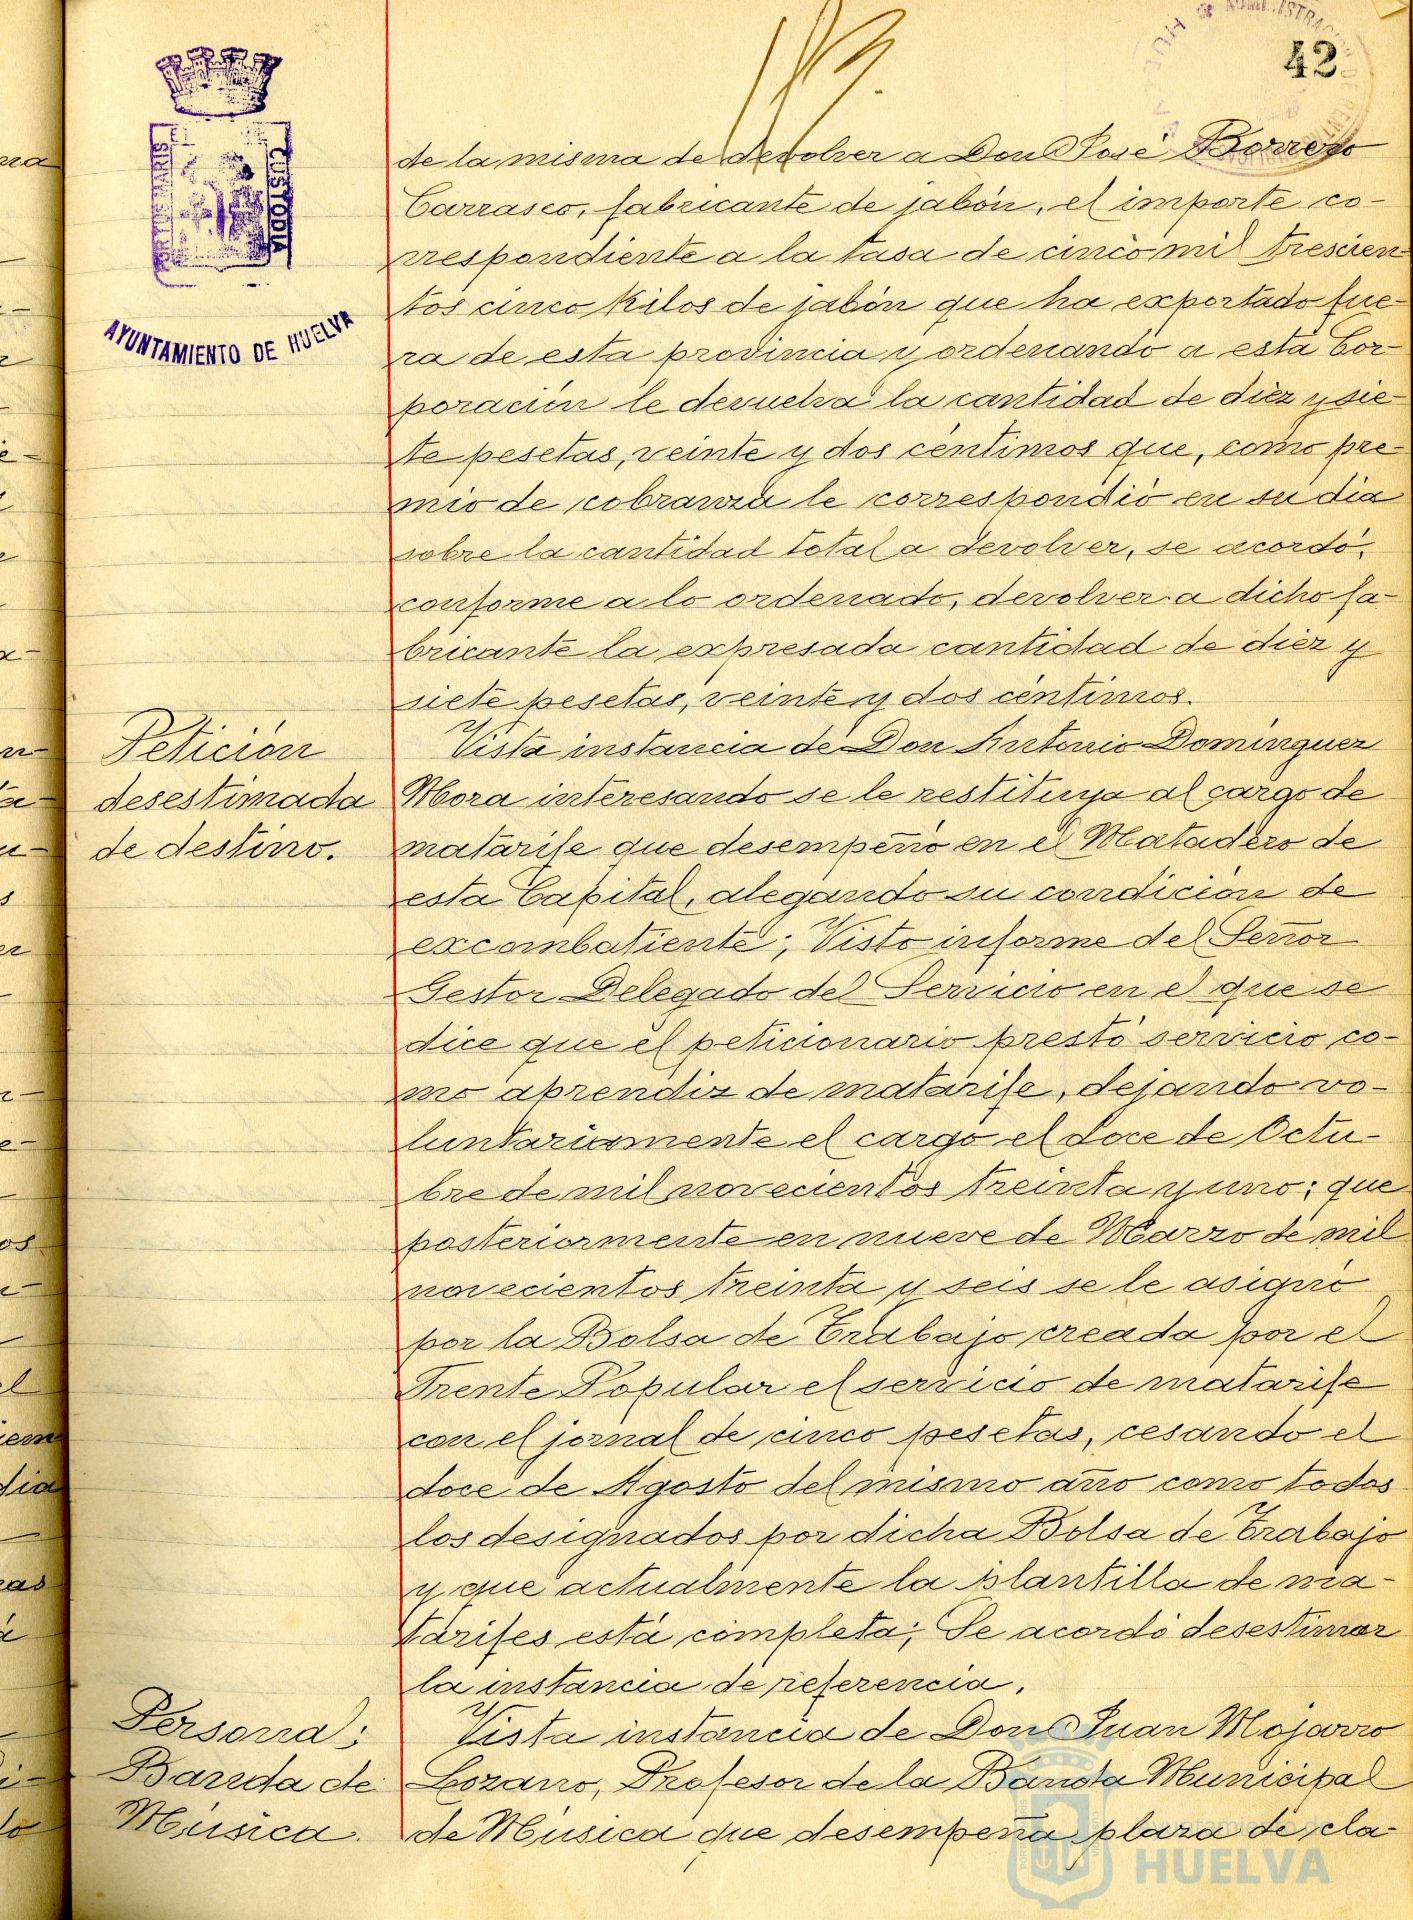 42
PORTUS MARIS ET CUSTODIA
AYUNTAMIENTO DE HUELVA
de la misma de devolver a Don José Borrero
Carrasco, fabricante de jabón, el importe co-
rrespondiente a la tasa de cinco mil trescien-
tos cinco kilos de jabón que ha exportado fue-
ra de esta provincia y ordenando a esta Cor-
poración le devuelva la cantidad de diez y sie-
te pesetas, veinte y dos céntimos que, como pre-
mio de cobranza le correspondió en su dia
sobre la cantidad total a devolver, se acordó,
conforme a lo ordenado, devolver a dicho fa-
bricante la expresada cantidad de diez y
siete pesetas, veinte y dos céntimos.
Petición
desestimada
de destino.
Vista instancia de Don Antonio Dominguez
Mora interesando se le restituya al cargo de
matarife que desempeñó en el Matadero de
esta Capital, alegando su condición de
excombatiente; Visto informe del Señor
Gestor Delegado del Servicio en el que se
dice que el peticionario prestó servicio co-
mo aprendiz de matarife, dejando vo-
luntariamente el cargo el doce de Octu-
bre de mil novecientos treinta y uno; que
posteriormente en nueve de Marzo de mil
novecientos treinta y seis se le asignó
por la Bolsa de Trabajo creada por el
Frente Popular el servicio de matarife
con el jornal de cinco pesetas, cesando el
doce de Agosto del mismo año como todos
los designados por dicha Bolsa de Trabajo
y que actualmente la plantilla de ma-
tarifes está completa; Se acordó desestimar
la instancia de referencia.
Personal:
Banda de
Música.
Vista instancia de Don Juan Mojarro
Lozano, Profesor de la Banda Municipal
de Música que desempeña plaza de cla-
HUELVA